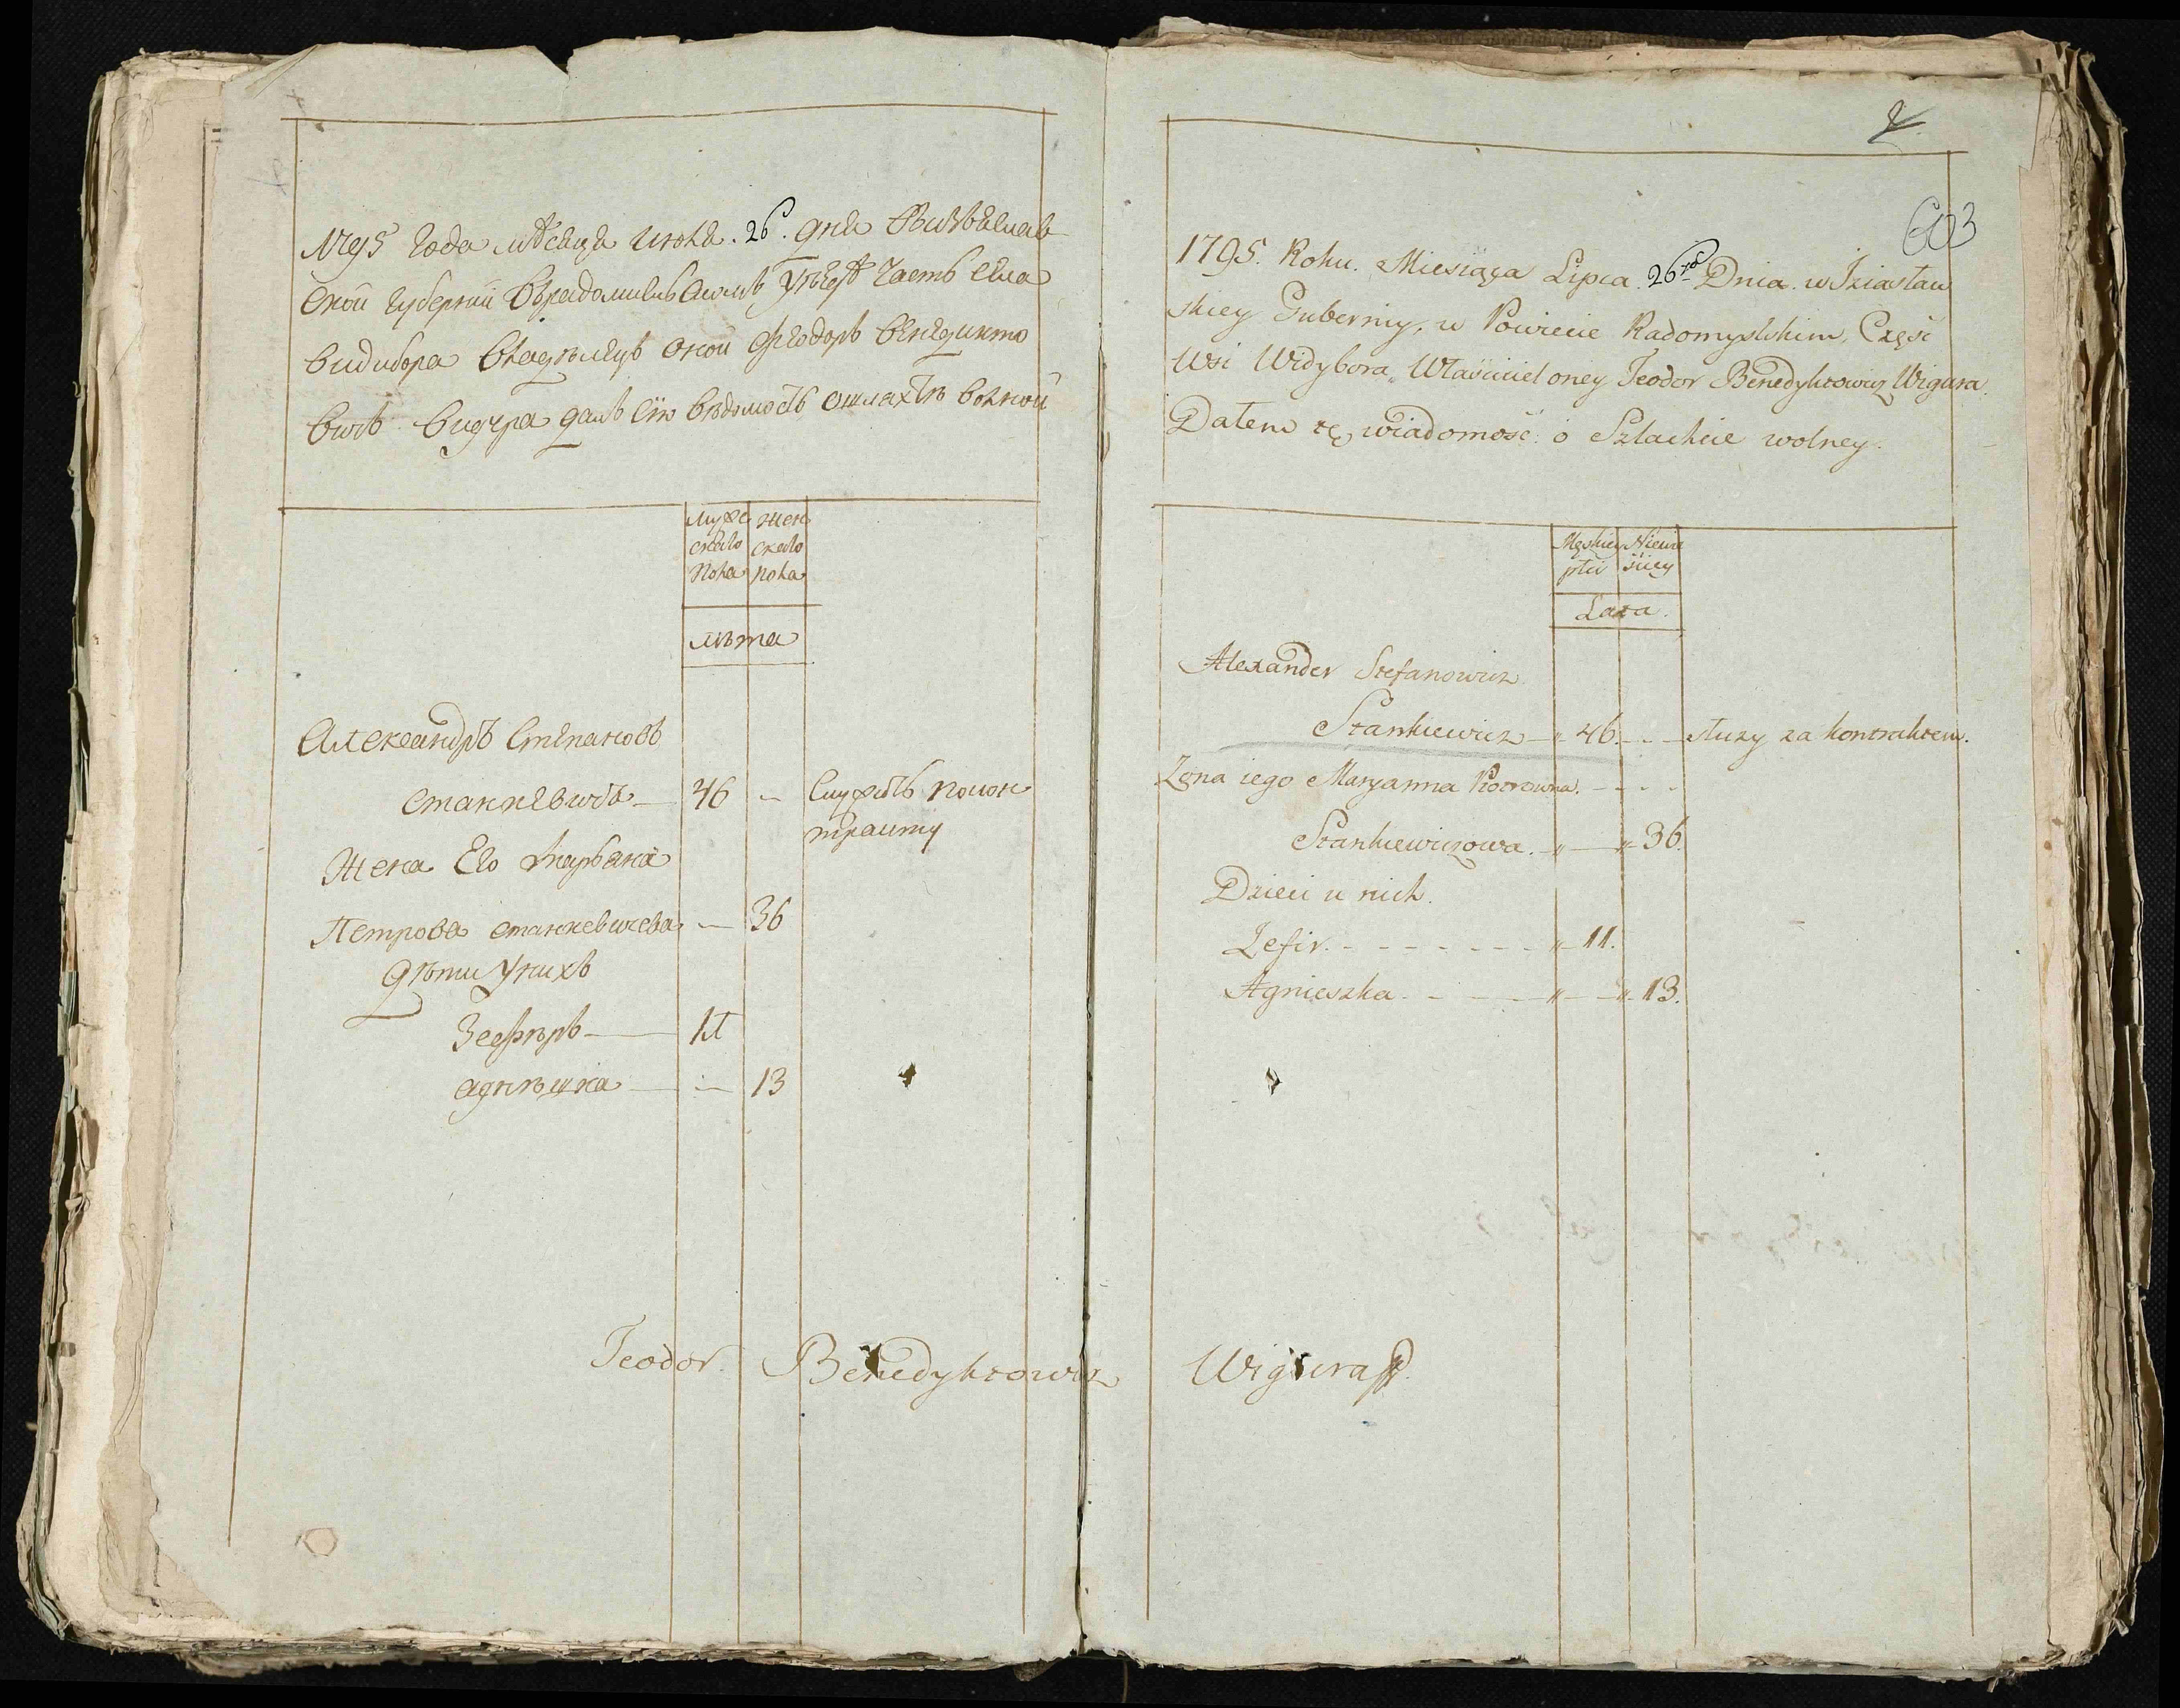 1795 года мѣсяца июля. 26. дня въизѣяслав
ской губерніи врадомислскомъ уѣздѣ часть села
видибора владѣлецъ оной феодоръ бенедикто
вичъ вигура далъ сїю вѣдомость ошляхтѣ волной
мужс жен
скаго скаго
пола пола
лѣта
Александръ Степановъ
станкевичъ — 46 — служитъ покон
тракту
жена Его Марьяна
Петрова станкевичева — 36
дѣти унихъ
Зефиръ — 11
агнѣшка — 13
Teodor Benedyktowicz Wigura
2
603
1795. Roku. Miesiąca Lipca. 26go Dnia. w Iziasław
skiey Guberniy. w Powiecie Radomyslskim, Częsć
Wsi Widybora, Własciciel oney Teodor Benedyktowicz Wigura.
Dałem tę wiadomość o Szlachcie wolney.
Męskiey Niewie
płci sciey
Lata.
Alexander Stefanowicz
Stankiewicz — 46. — służy za kontraktem.
Zona iego Maryanna Piotrowna. - - - -
Stankiewiczowa. — „ — „ 36.
Dzieci u nich.
Zefir. - - - - - - - „ 11.
Agnieszka. - - - — „ — „ 13.